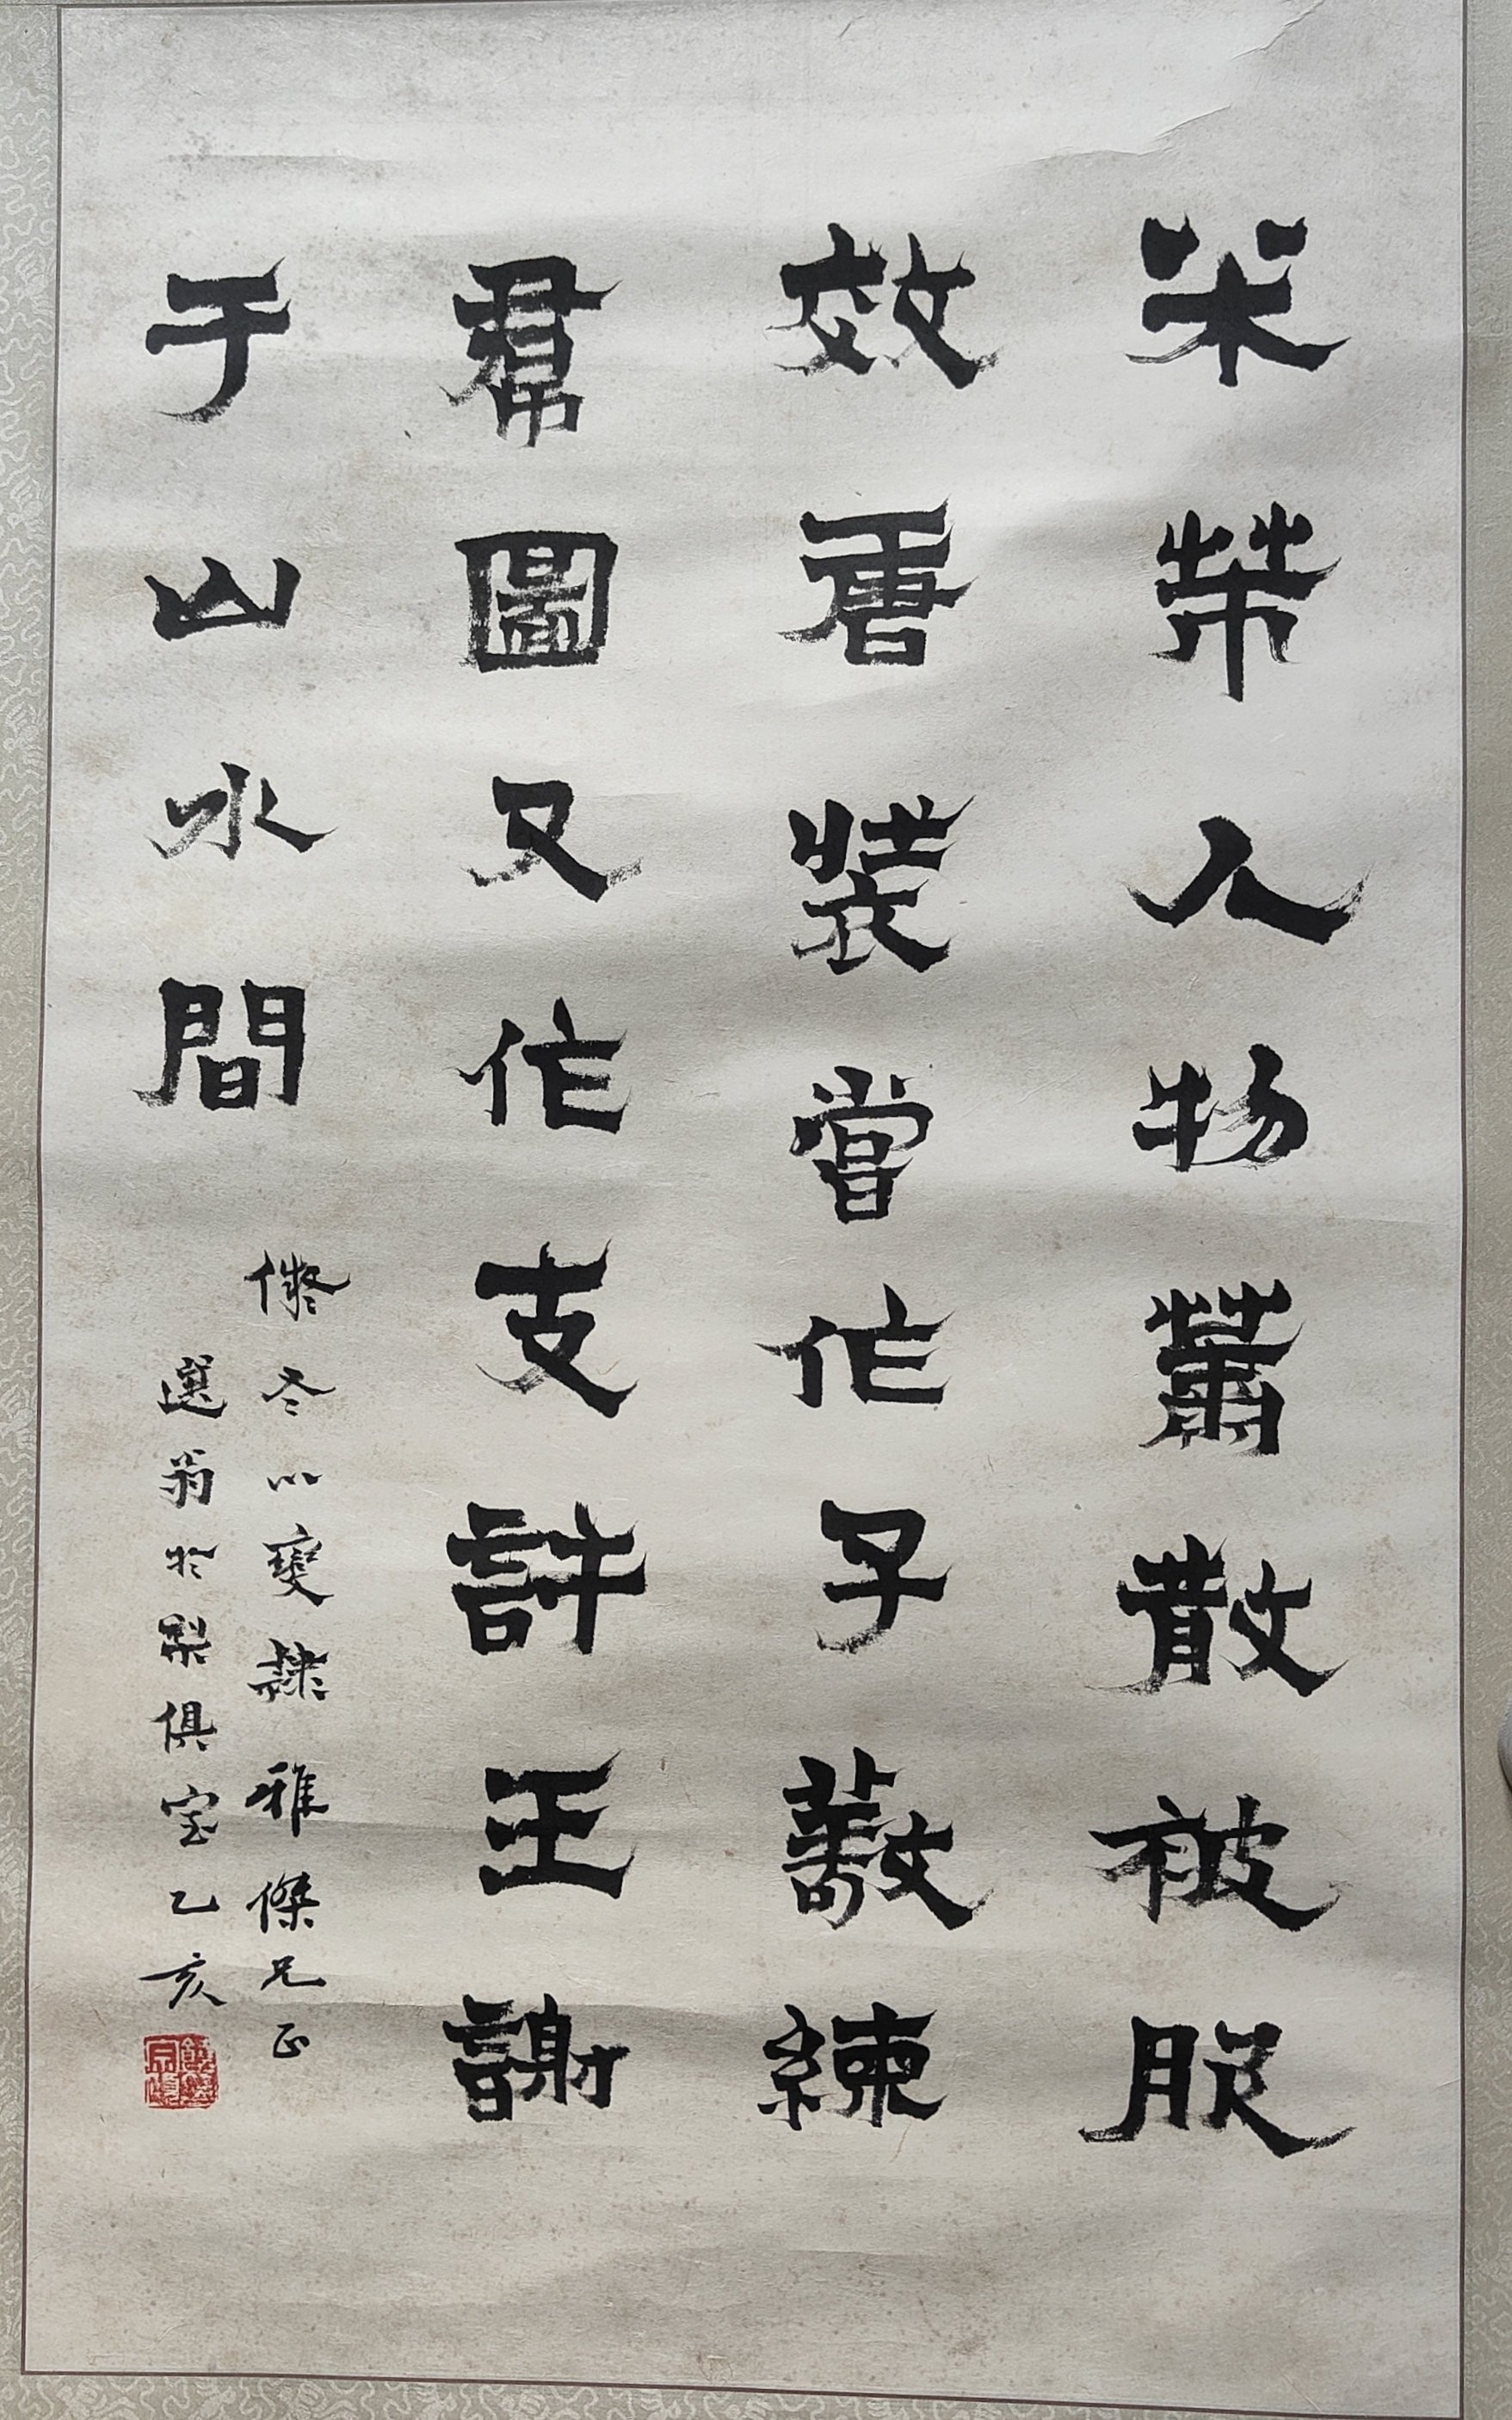 米芾人物蕭散被服
效唐裝嘗作子敬練
帬圖又作支許王謝
于山水間
儗冬心變隸雅傑兄正
選翁於梨俱室乙亥